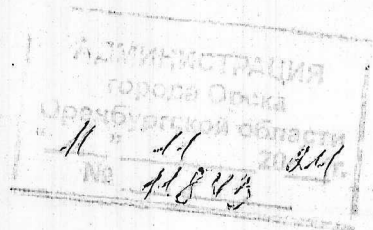 АДМИНИСТРАЦИЯ
города Орска
Оренбургской области
" 11 " 11 2024 г.
№ 11843